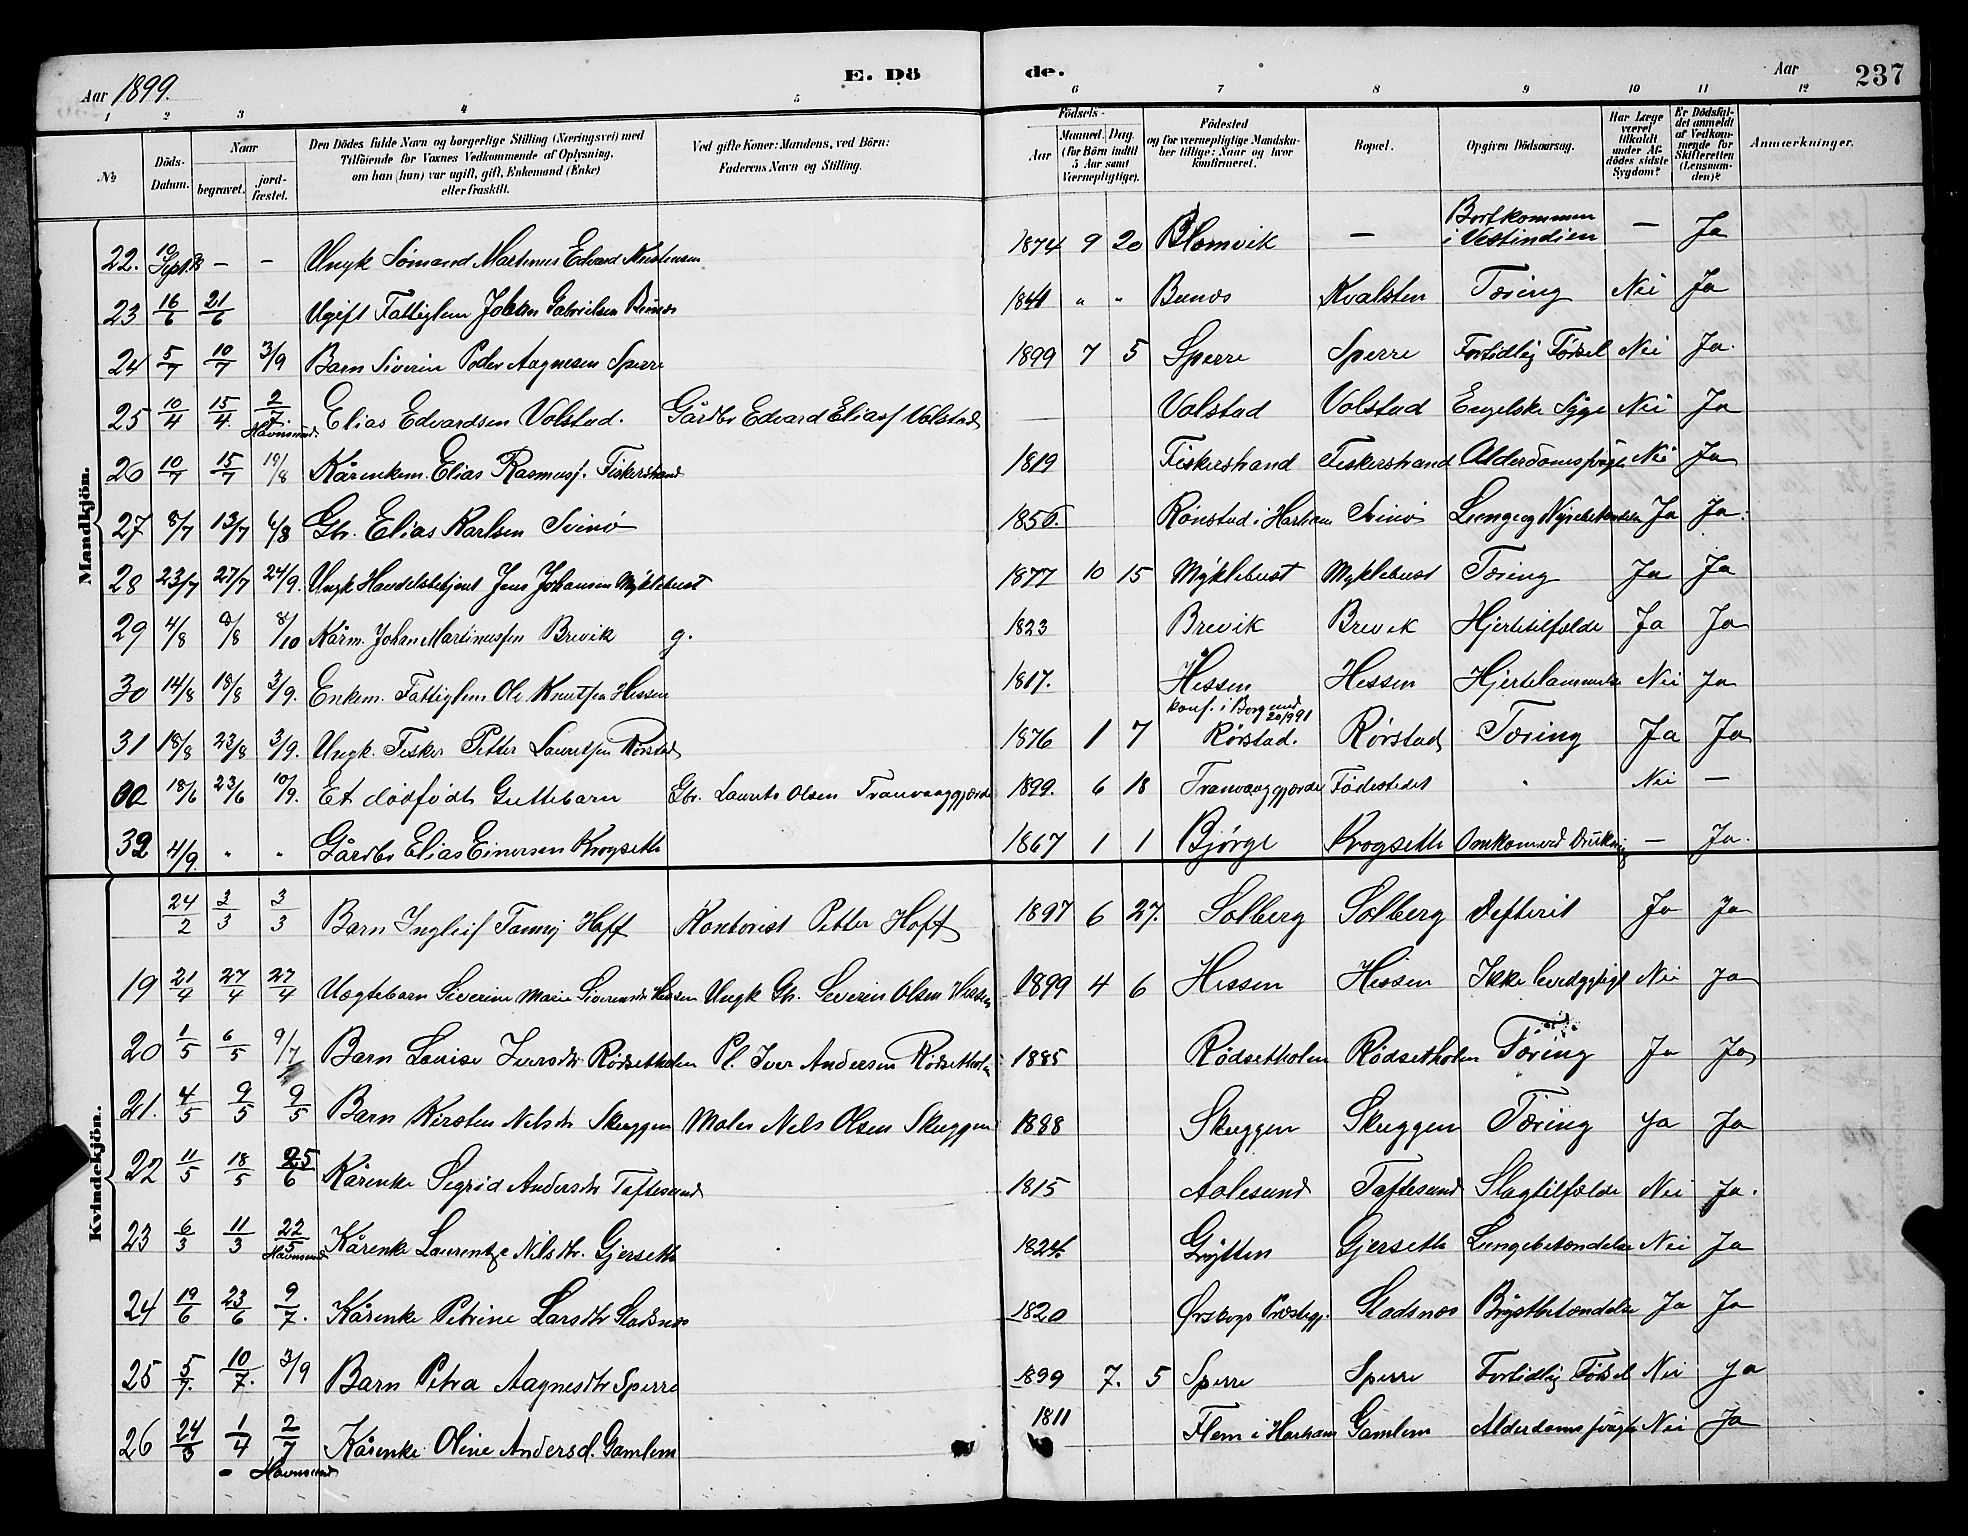 Aar 1899.
E. Dö
de.
Aar
237
1 2 3 4 5 6 7 8 9 10 11 12
№
Döds-Datum.
Naar
begravet.
jord-fæstet.
Den Dödes fulde Navn og borgerlige Stilling (Næringsvei) med
Tilföiende for Voxnes Vedkommende af Oplysning,
om han (hun) var ugift, gift, Enkemand (Enke)
eller fraskilt.
Ved gifte Koner: Mandens, ved Börn:
Faderens Navn og Stilling.
Födsels-
Aar
Maaned. Dag.
(for Börn indtil
5 Aar samt
Værnepligtige).
Födested
og for værnepligtige Mandska-
ber tillige: Naar og hvor
konfirmeret.
Bopæl.
Opgiven Dödsaarsag.
Har Læge
været
tilkaldt
under Af-
dödes sidste
Sygdom?
Er Dödsfal-
det anmeldt
af Vedkom-
mende for
Skifteretten
(Lensman-
den)?
Anmærkninger.
Mandkjön.
22. 10 Sept. – – Ungk Sömand Martinus Edvard 1874 9 20 Blomvik – Bortkommen i Vestindien – Ja
23 16/6 21/6 Ugift Fattiglem Johan Gabrielsen Bunæs 1844 " " Bunæs Kvalsten Tæring Nei Ja
24 5/7 10/7 3/9 Barn Siverin Peder Aagnesen Sperre 1899 7 5 Sperre Sperre Fortidlig Försel Nei Ja.
25 10/4 15/4 2/7 Havnsund. Elias Edvardsen Volstad. Gårdbr Edvard Elias. Volstad Volstad Volstad Engelske Syge Nei Ja
26 10/7 15/7 19/8 Kårenkem. Elias Rasmuss. Fiskerstrand 1819 Fiskerstrand Fiskerstrand Alderdomssvaghed Nei Ja
27 8/7 13/7 6/8 Gbr. Elias Karlsen Svinö 1856. Rönstad i Harham Svinö Lunge og Nyrebetændelse Ja Ja.
28 23/7 27/7 24/9. Ungk Handelsbetjent Jens Johansen Myklebust 1877 10 15 Myklebust Myklebust Tæring Ja Ja
29 4/8 9/8 8/10 Kårm. Johan Martinussen Brevik g. 1823 Brevik Brevik Hjertetilfælde Ja Ja
30 14/8 18/8 3/9. Enkem. Fattiglem Ole Knutsen Hessen 1817. Hessen Hessen Hjertelammelse Nei Ja
31 18/8 23/8 3/9. Ungk. Fisker Petter Lauritsen Rörstad 1876 1 7 konf. i Borgund 20/9 91 Rörstad. Rörstad Tæring Ja Ja
00 18/6 23/6 10/9. Et dödfödt Guttebarn Gbr. Laurits Olsen Tranvaaggjærde 1899. 6 18 Tranvaaggjærde Födestedet " Nei –
32 4/9. " " Gårdbr Elias Einersen Krogseth 1867 1 1 Bjørge Krogseth Omkom ved Drukning – Ja.
Kvindekjön.
24/2 3/3 3/3 Barn Ingleif Fanny Hoff Kontorist Petter Hoff 1897 6 27. Solberg Solberg Defterit Ja Ja
19 21/4 27/4 27/4 Uægtebarn Severine Marie Siverensdr Hessen Ungk Gbr. Severin Olsen Hessen 1899 4 6 Hessen Hessen Ikke levedygtigt Nei Ja
20 1/5 6/5 9/7 Barn Louise Iversdr Rödsetholm Pl. Iver Andersen Rödsetholm 1885 Rödsetholm Rödsetholm Tæring Ja Ja
21. 4/5 9/5 9/5 Barn Kirsten Nilsdr Skuggen Maler Nels Olsen Skuggen 1888 Skuggen Skuggen Tæring Ja Ja
22 11/5 18/5 25/6 Kårenke Segrid Andersdr Taftesund 1815 Aalesund Taftesund Slagtilfælde Nei Ja.
23 6/3 11/3 22/5 Havnsund Kårenke Laurentze Nilsdtr. Gjerseth 1824. Grytten Gjerseth Lungebetændelse Nei Ja
24 19/6 23/6 9/7. Kårenke Petrine Larsdtr Stadsnæs 1820 Örskogs Præstegj. Stadsnæs Brystbetændelse Ja Ja
25 5/7. 10/7. 3/9 Barn Petra Aagnesdtr Sperre 1899 7. 5 Sperre Sperre Fortidlig Försel Nei Ja
26 24/3 1/4 2/7 Havnsund Kårenke Oline Andersd. Gamlem 1811 Flem i Harham Gamlem Alderdomssvaghed Nei Ja